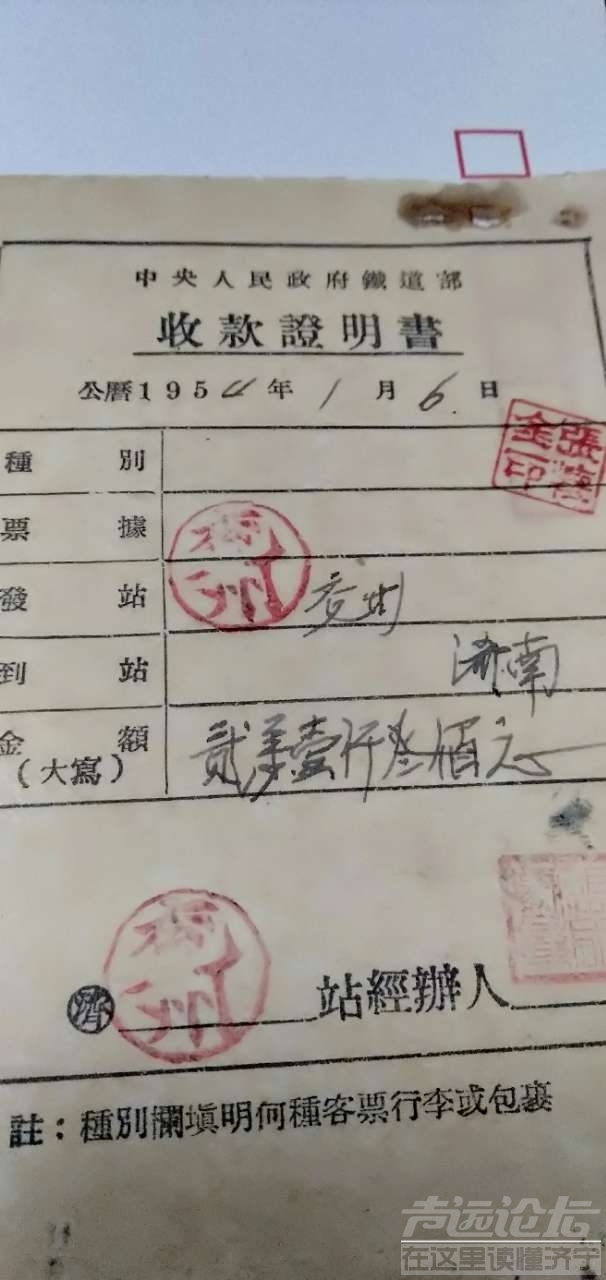 中央人民政府鐵道部
收款證明書
公曆1954年1月6日
種別
票據
發站 兗州
到站 濟南
金額 貳萬壹仟叁佰元
(大寫)
濟 站經辦人
註：種別欄填明何種客票行李或包裹
声远论坛
在这里读懂济宁